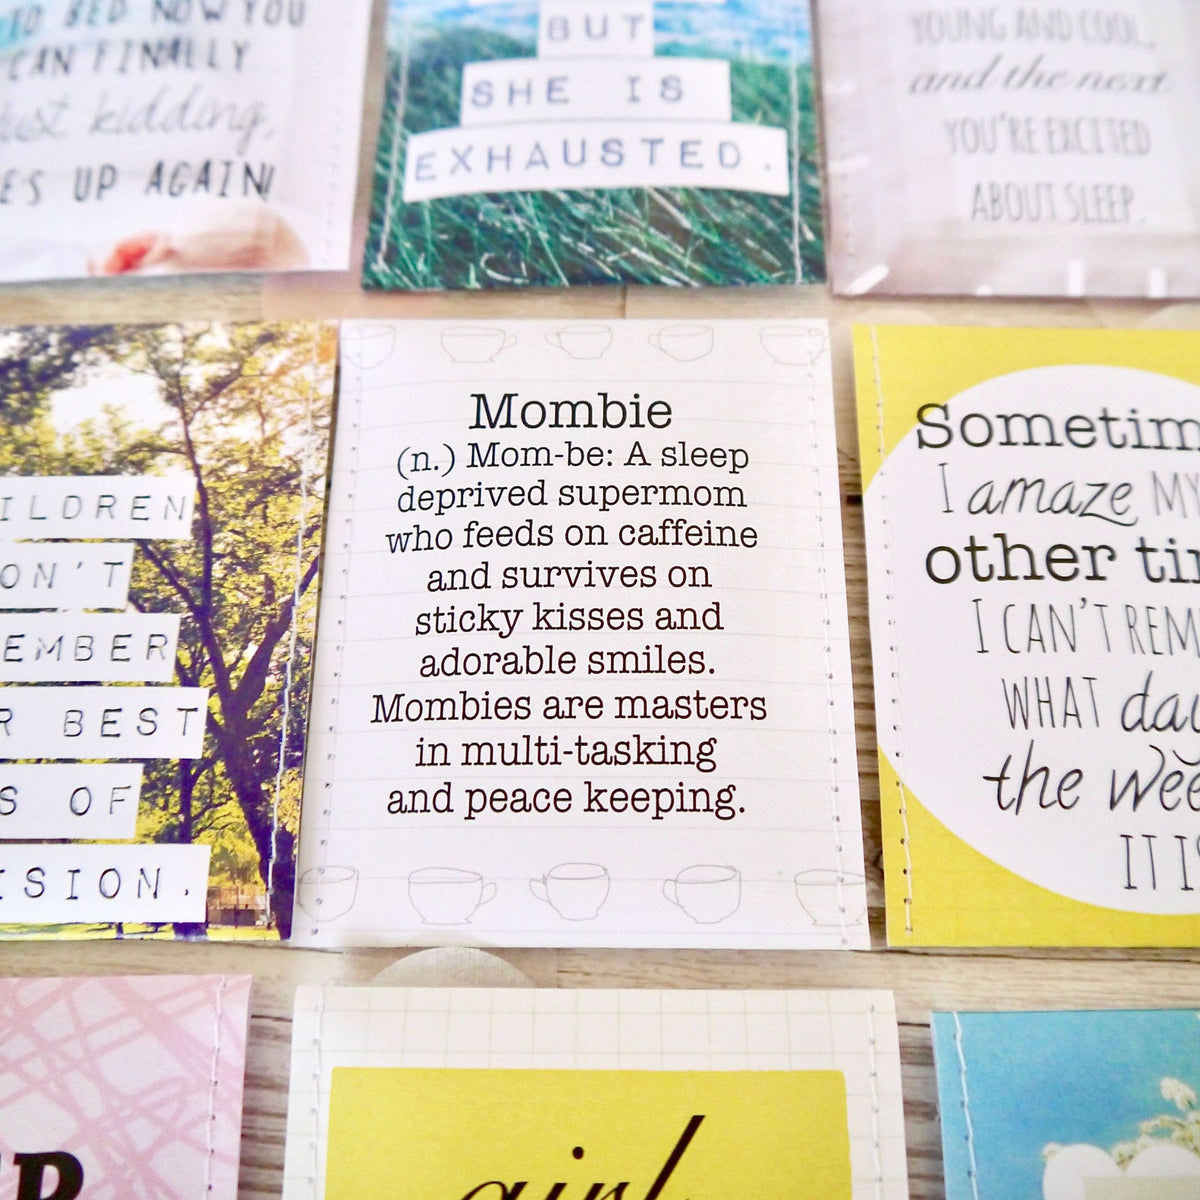 TO BED NOW YOU
CAN FINALLY
Just kidding,
UP AGAIN!
BUT
SHE IS
EXHAUSTED.
YOUNG AND COOL,
and the next
YOU'RE EXCITED
ABOUT SLEEP.
ILDREN
ON'T
EMBER
R BEST
S OF
ISION.
Mombie
(n.) Mom-be: A sleep
deprived supermom
who feeds on caffeine
and survives on
sticky kisses and
adorable smiles.
Mombies are masters
in multi-tasking
and peace keeping.
Sometim
I amaze MY
other ti
I CAN'T REM
WHAT day
the wee
IT IS
girl